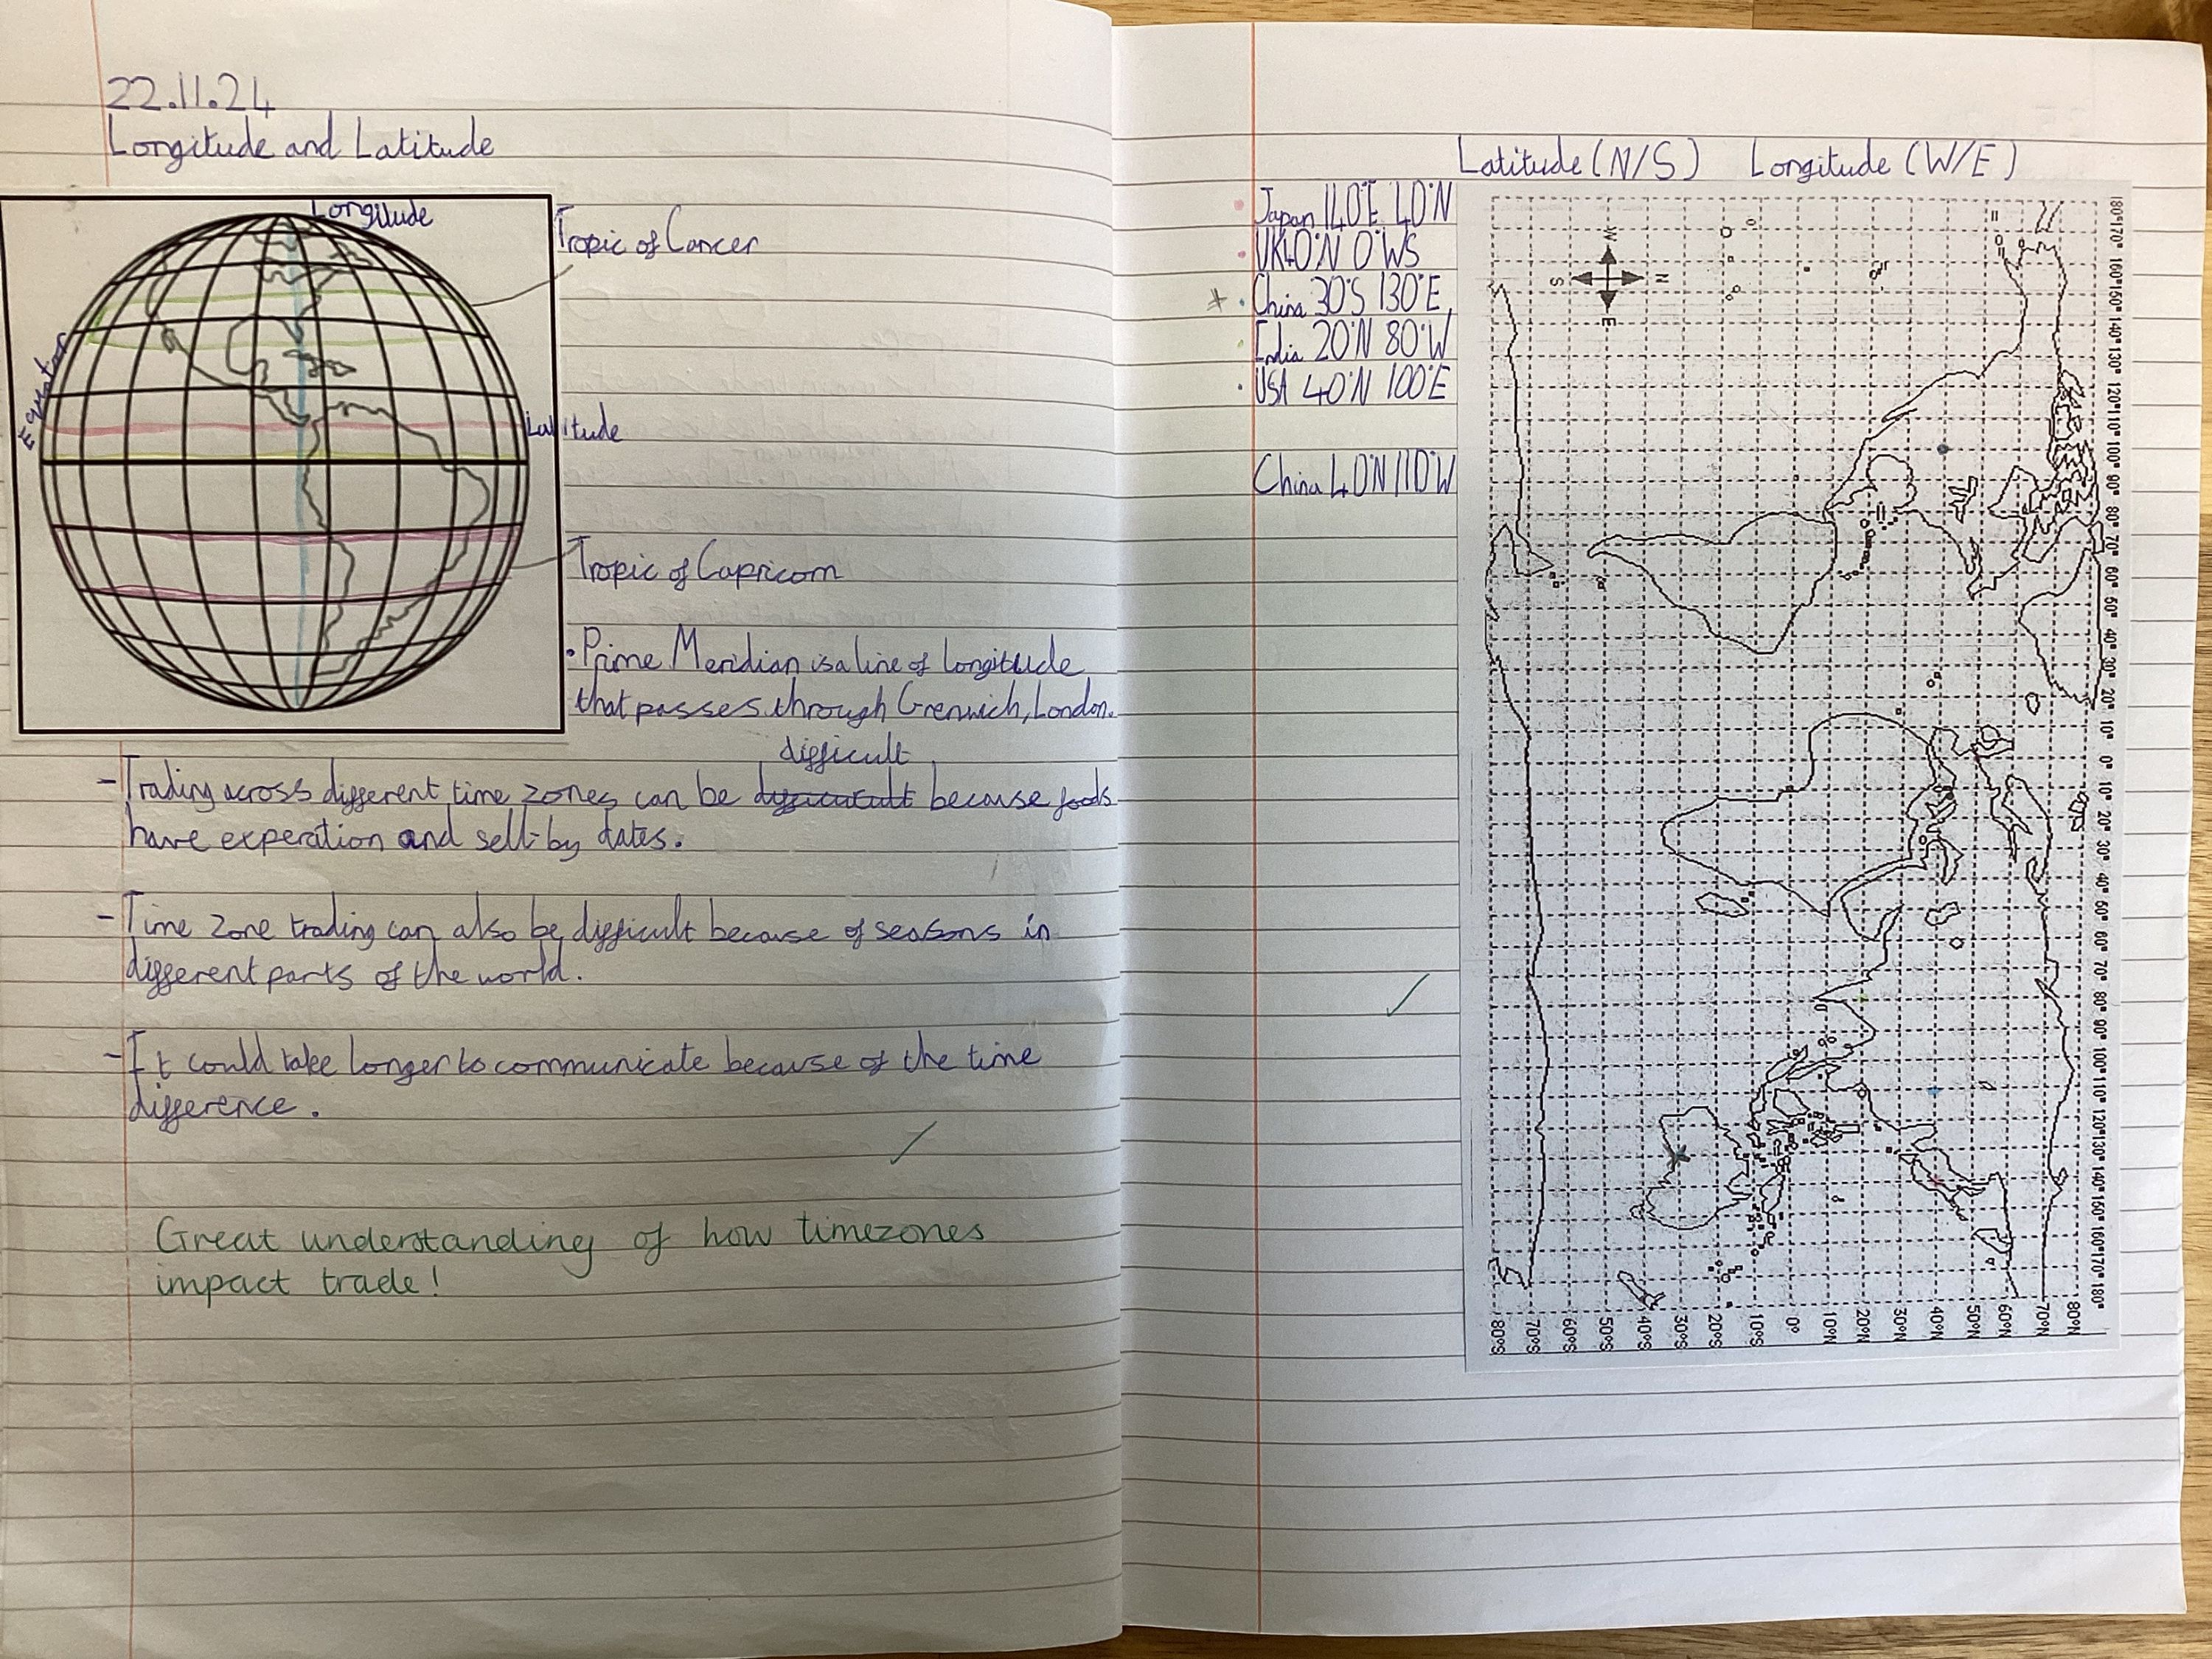 22.11.24
Longitude and Latitude
Longitude
Tropic of Cancer
Equator
Latitude
Tropic of Capricorn
• Prime Meridian is a line of longitude
that passes through Grenwich, London.
difficult
- Trading across different time zones can be because foods
have experation and sell-by dates.
- Time zone trading can also be difficult because of seasons in
different parts of the world.
- It could take longer to communicate because of the time
difference.
Great understanding of how timezones
impact trade!
Latitude (N/S) Longitude (W/E)
• Japan 140°E 40°N
• UK 40°N 0°WS
* • China 30°S 130°E
• India 20°N 80°W
• USA 40°N 100°E
China 40°N 110°W
W
S N
E
180° 170° 160° 150° 140° 130° 120° 110° 100° 90° 80° 70° 60° 50° 40° 30° 20° 10° 0° 10° 20° 30° 40° 50° 60° 70° 80° 90° 100° 110° 120° 130° 140° 150° 160° 170° 180°
80°S 70°S 60°S 50°S 40°S 30°S 20°S 10°S 0° 10°N 20°N 30°N 40°N 50°N 60°N 70°N 80°N